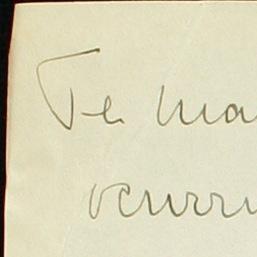 Te ma
ocurri